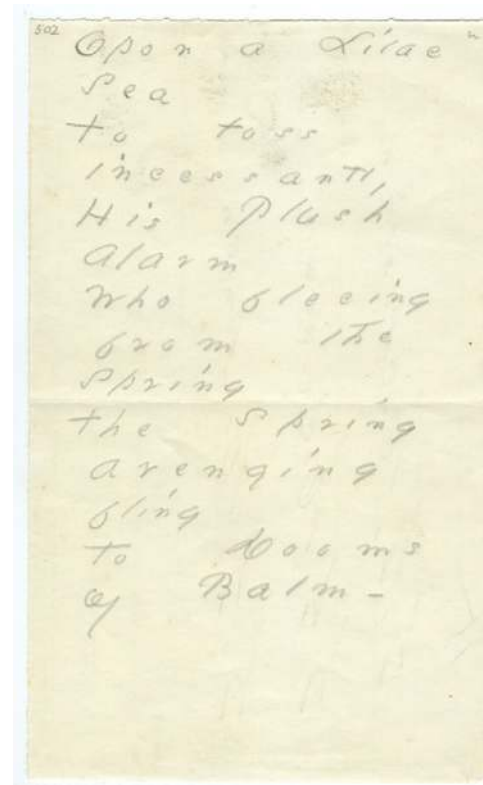 502
Opon a Lilac
Sea
to toss
incessantly
His Plush
Alarm
Who fleeing
from the
Spring
the Spring
avenging
fling
to Dooms
of Balm -